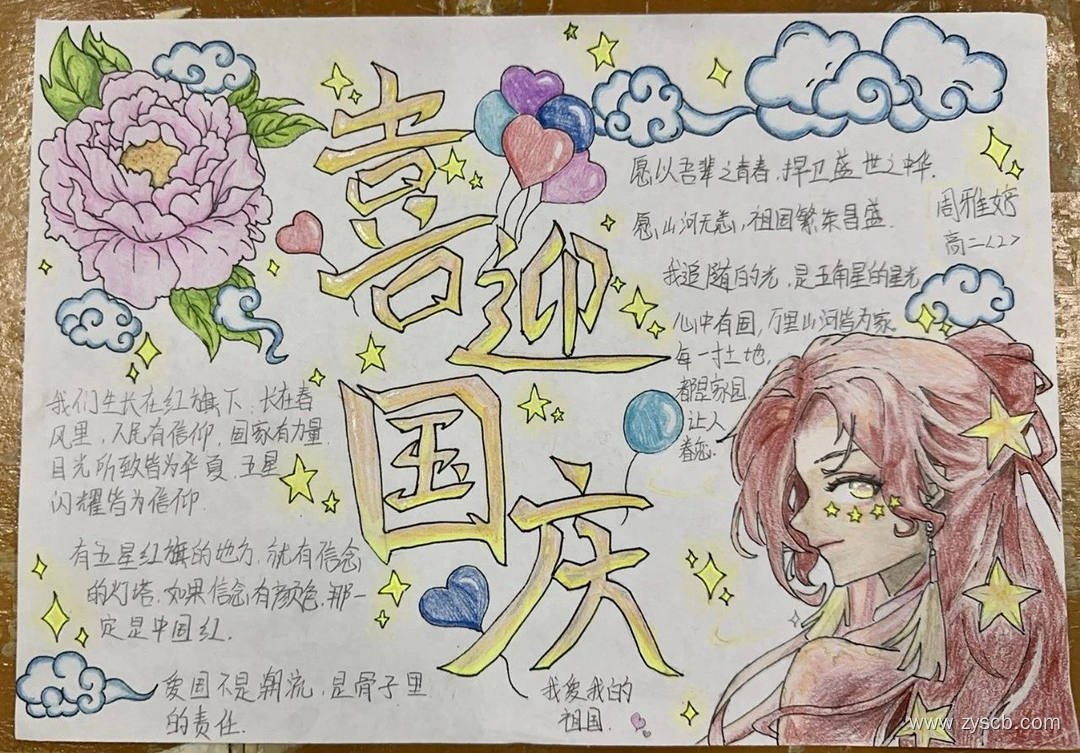 喜迎国庆
愿以吾辈之青春，捍卫盛世之中华.
愿山河无恙，祖国繁荣昌盛.
周雅婷
高二<2>
我追随的光，是五角星的星光
心中有国，万里山河皆为家.
每一寸土地，
都是家国.
让人
眷恋.
我们生长在红旗下，长在春
风里，人民有信仰，国家有力量.
目光所致皆为华夏，五星
闪耀皆为信仰.
有五星红旗的地方，就有信念
的灯塔.如果信念有颜色.那一
定是中国红.
爱国不是潮流，是骨子里
的责任.
我爱我的
祖国.
www.zyscb.com